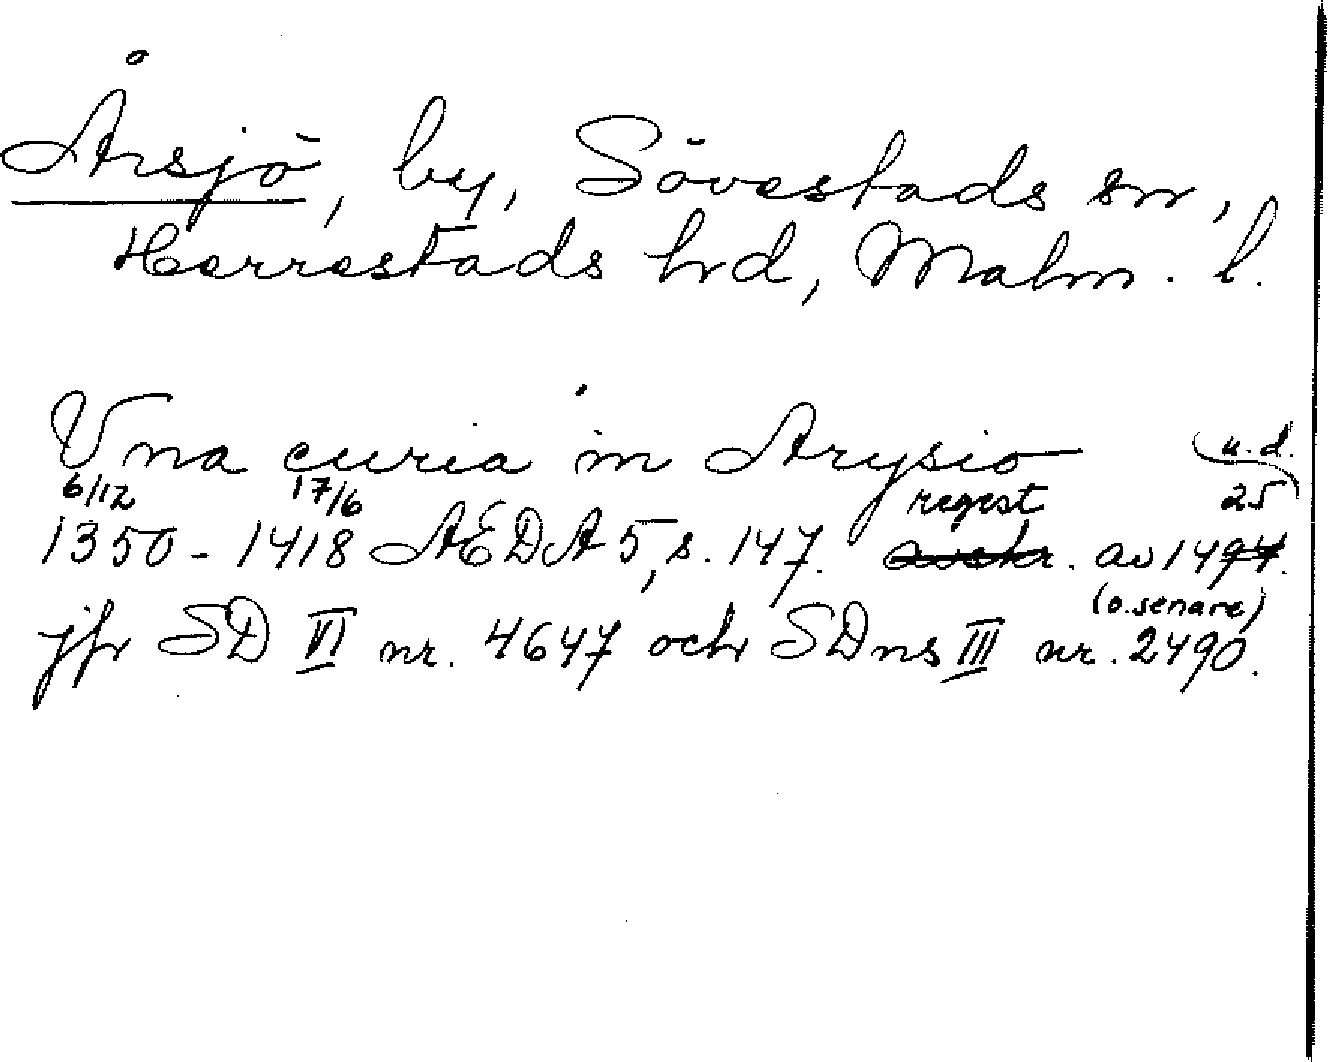 Årsjö, by, Sövestads sn,
Herrestads hrd, Malm. l.
Vna curia in Arysio u.d.
6/12 17/6 regest 25
1350-1418 AEDA 5, s. 147. avskr. av 1494.
(o. senare)
jfr SD VI nr. 4647 och SDns III nr. 2490.